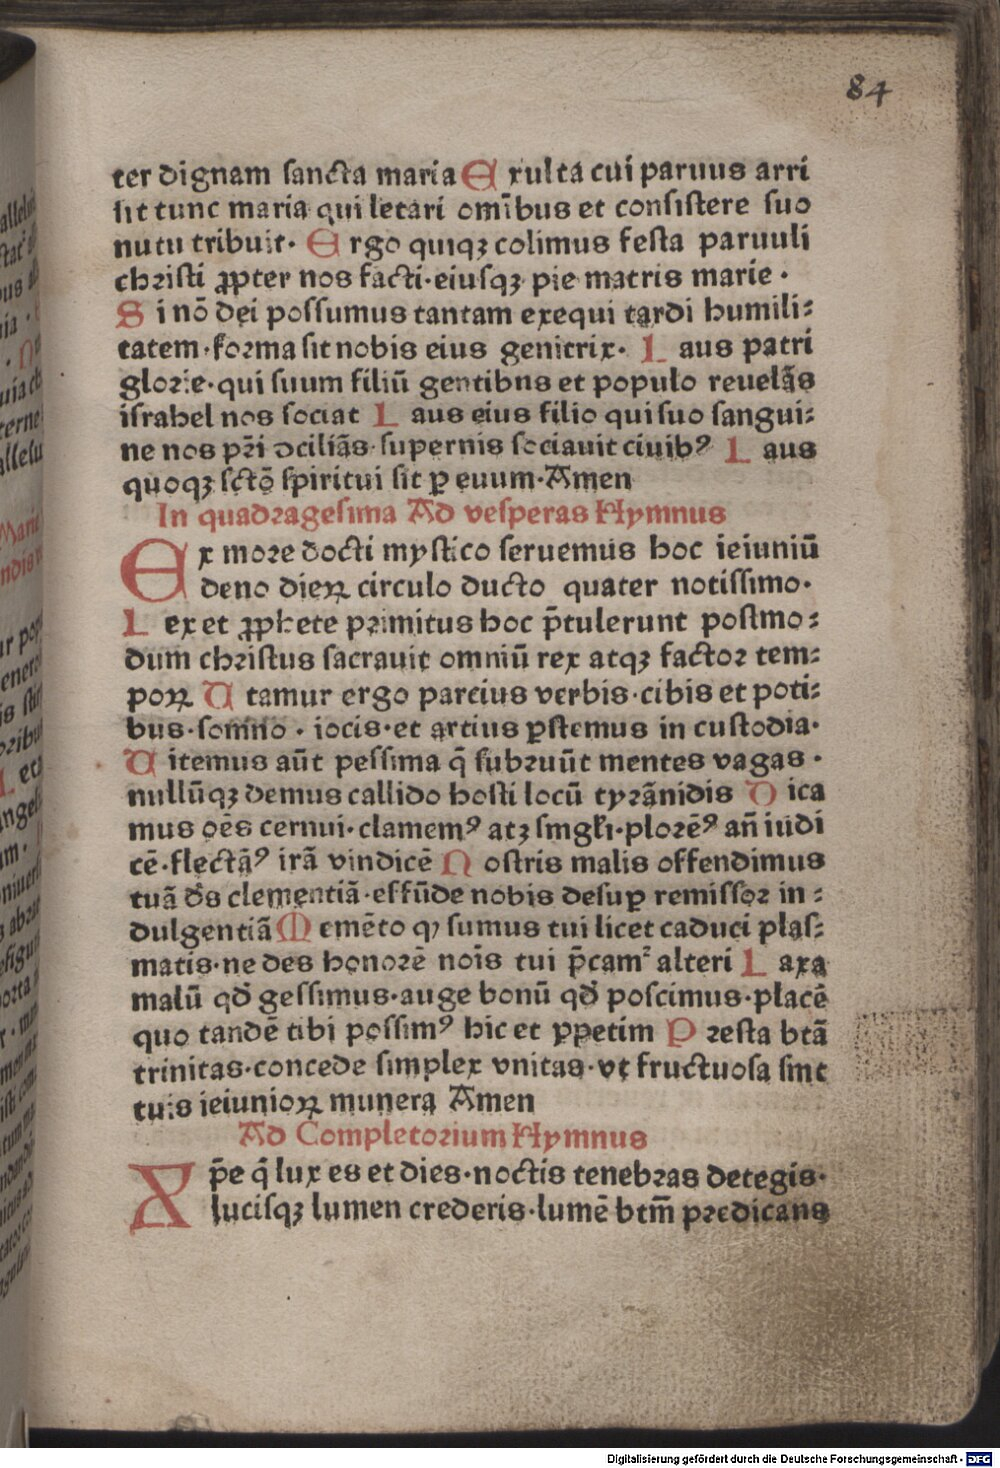 84
ter dignam sancta maria Exulta cui paruus arri
sit tunc maria qui letari om̄ibus et consistere suo
nutu tribuit· Ergo quiqꝫ colimus festa paruuli
christi ꝓpter nos facti·eiusqꝫ pie matris marie ·
Si nō dei possumus tantam exequi tardi humili:
tatem·forma sit nobis eius genitrix· Laus patri
glorie·qui suum filiū gentibus et populo reuelās
israhel nos sociat Laus eius filio qui suo sangui:
ne nos pr̄i ↄciliās·supernis sociauit ciuibꝰ Laus
quoqꝫ sctō spiritui sit ꝑ euum·Amen
In quadragesima Ad vesperas Hymnus
Ex more docti mystico seruemus hoc ieiuniū
deno dieꝝ circulo ducto quater notissimo·
Lex et ꝓphete primitus hoc p̄tulerunt postmo:
dum christus sacrauit omniū rex atqꝫ factor tem:
poꝝ Utamur ergo parcius verbis·cibis et poti:
bus·somno·iocis·et artius ꝑstemus in custodia·
Uitemus aūt pessima q̄ subruūt mentes vagas·
nullūqꝫ demus callido hosti locū tyrānidis Dica
mus oēs cernui·clamemꝰ atꝫ smgl̄i·plorēꝰ an̄ iudi
cē·flectāꝰ irā vindicē Nostris malis offendimus
tuā d̄s clementiā·effūde nobis desuꝑ remissor in:
dulgentiā Memēto qꝫ sumus tui licet caduci plas:
matis·ne des honorē nōis tui p̄camꝰ alteri Laxa
malū qd̄ gessimus·auge bonū qd̄ poscimus·placē
quo tandē tibi possimꝰ hic et ꝑpetim Presta btā
trinitas·concede simplex vnitas·vt fructuosa sint
tuis ieiunioꝝ munera Amen
Ad Completorium Hymnus
Xp̄e q̄ lux es et dies·noctis tenebras detegis·
lucisqꝫ lumen crederis·lumē btm̄ predicans
Digitalisierung gefördert durch die Deutsche Forschungsgemeinschaft - DFG